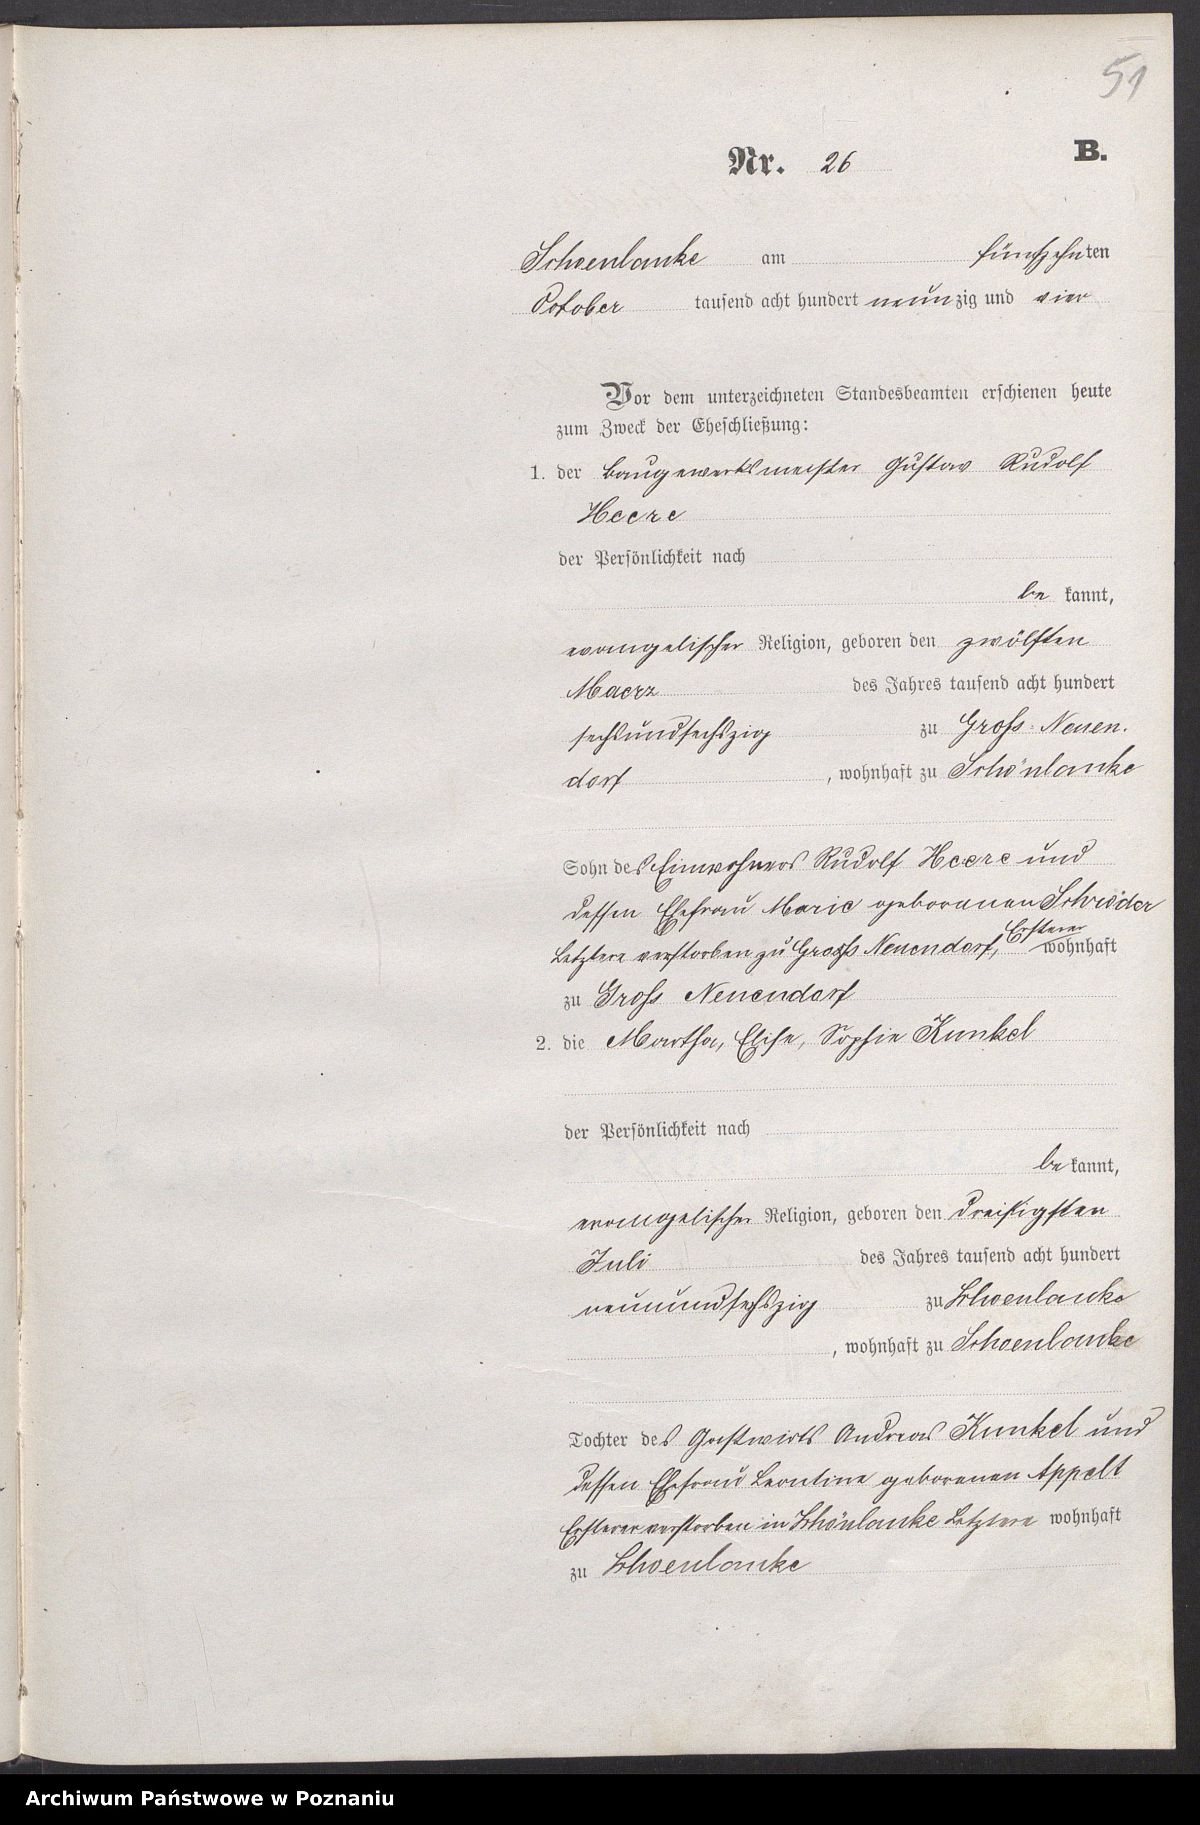 51
Nr. 26 B.
Schoenlanke am fünfzehnten
October tausend acht hundert neunzig und vier
Vor dem unterzeichneten Standesbeamten erschienen heute
zum Zweck der Eheschließung:
1. der Baugewerksmeister Gustav Rudolf
Heere
der Persönlichkeit nach
be kannt,
evangelischer Religion, geboren den zwölften
Maerz des Jahres tausend acht hundert
sechsundsechszig zu Gross-Neuen-
dorf, wohnhaft zu Schönlanke
Sohn des Einwohners Rudolf Heere und
dessen Ehefrau Marie geborenen Schröder
Letztere verstorben zu Gross Neuendorf, Ersterer wohnhaft
zu Gross Neuendorf
2. die Martha, Elise, Sophie Kunkel
der Persönlichkeit nach
be kannt,
evangelischer Religion, geboren den dreißigsten
Juli des Jahres tausend acht hundert
neunundsechszig zu Schoenlanke
, wohnhaft zu Schoenlanke
Tochter des Gastwirts Andreas Kunkel und
dessen Ehefrau Leontine geborenen Appelt
Ersterer verstorben in Schönlanke Letztere wohnhaft
zu Schoenlanke
Archiwum Państwowe w Poznaniu